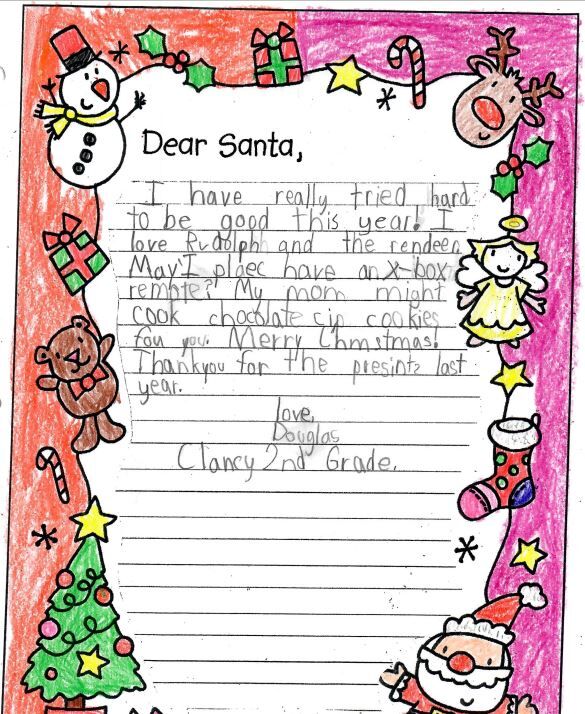 Dear Santa,
I have really tried hard
to be good this year! I
love Rudolph and the rendeer
May I plaec have an x-box
remote? My mom might
cook choclate cip cookies
fou you. Merry Chrnstmas!
Thankyou for the presints last
year.
love,
Douglas
Clancy 2nd Grade.